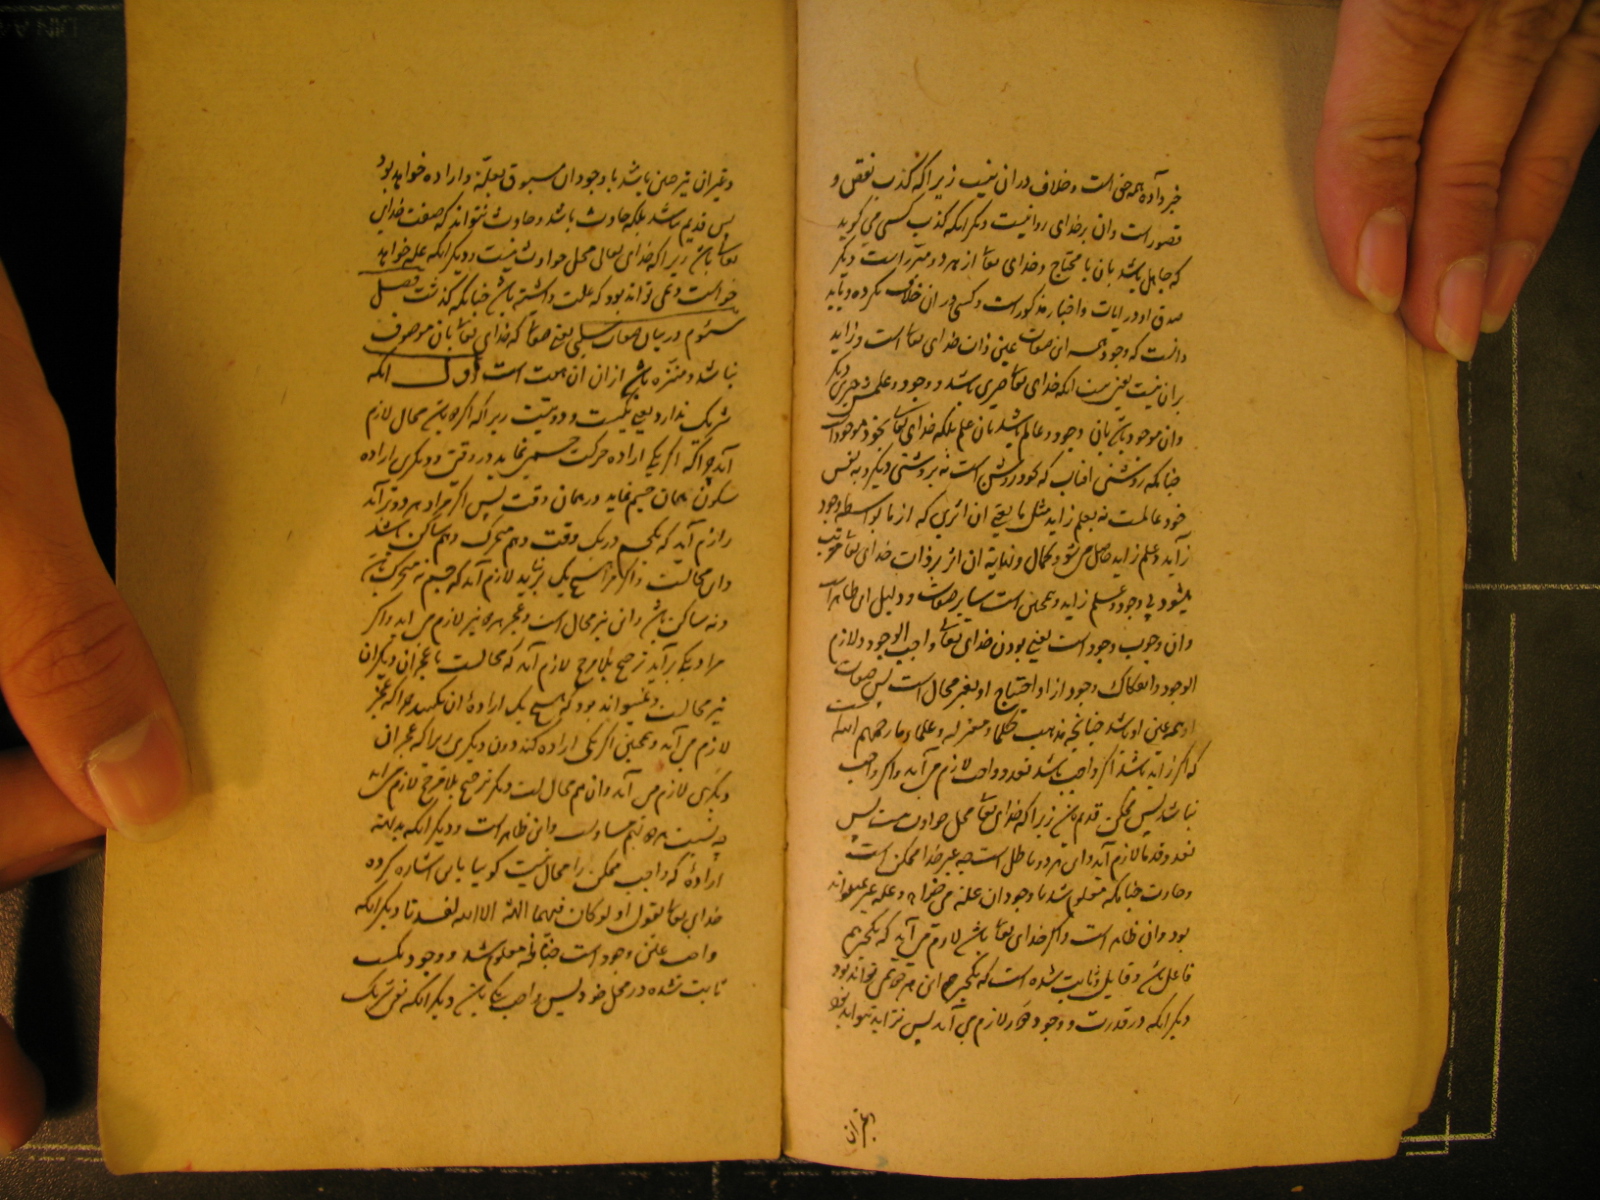 خبر داده همه حق است و خلاف در ان نیست زیرا که کذب نقص و
قصور است و ان بر خدای روا نیست دیکر انکه کذب کسی می کوید
که جاهل باشد بان یا محتاج و خدای تعالی از هر دو مبراست دیکر
صدق او در ایات و اخبار مذکور است و کسی در ان خلاف نکرده و باید
دانست که وجود همه ان صفات عین ذات خدای تعالی است و زاید
بران نیست یعنی نیست انکه خدای تعالی چیزی باشد و وجود و علمش چیزی دیکر
وان موجود باشد بان وجود و عالم باشد بان علم بلکه خدای تعالی بخود موجود است
چنانکه روشنی افتاب که بخود روشن است نه بروشنی دیکر و به نفس
خود عالمست نه بعلم زاید مثل ما یعنی ان اثری که از ما بواسطه وجود
زاید و علم زاید حاصل می شود کمال و نهایة ان اثر بر ذات خدای تعالی مترتب
میشود بی وجود و علم زاید و همچنین است سایر صفات و دلیل این ظاهر است
وان وجوب وجود است یعنی بودن خدای تعالی واجب الوجود و لازم
الوجود و انفکاک وجود از او و احتیاج او بغیر محال است پس صفات
او همه عین او باشد چنانچه مذهب حکما و معتزله و علماء ما رحمهم الله است
که اکر زاید باشد اکر واجب باشد تعدد واجب لازم می آید و اکر واجب
نباشد پس ممکن قدیم باشد زیرا که خدای تعالی محل حوادث نیست پس
تعدد قدما لازم آید و این هر دو باطل است چه غیر خدا ممکن است
و حادث چنانکه معلوم شد با وجود ان علة می خواهد و علة غیر نمیتواند
بود وان ظاهر است و اکر خدای تعالی باشد لازم می آید که یک چیز هم
فاعل باشد و قابل و ثابت شده است که یک چیز این هر دو نمی تواند بود
دیکر انکه در قدرت و وجود دور لازم می آید پس نزاید تواند بود
وغیران
وغیران نیز حق باشد با وجود ان مسبوق بعلة و اراده خواهد بود
پس قدیم نباشد بلکه حادث باشد و حادث نتواند که صفت خدای
تعالی باشد زیرا که خدای تعالی محل حوادث نیست و دیکر انکه علة خواهد
خواست و نمی تواند بود که علت داشته باشد چنانکه کذشت فصل
سئوم در بیان صفات سلبی یعنی صفاتی که خدای تعالی بان موصوف
نباشد و منزه باشد از ان ان هست است اول انکه
شریک ندارد یعنی یکیست و دو نیست زیرا که اکر دو باشد محال لازم
آید چراکه اکر یکی اراده حرکت جسمی نماید در وقتی و دیکری اراده
سکون همان جسم نماید در همان وقت پس اکر مراد هر دو بر آید
لازم آید که یک جسم در یک وقت هم متحرک و هم ساکن باشد
و این محالست و اکر مراد هیچ یک بر نیاید لازم آید که جسم نه متحرک باشد
و نه ساکن باشد و این نیز محال است و عجز هر دو نیز لازم می اید و اکر
مراد یکی بر آید ترجیح بلا مرجح لازم آید که محالست با عجز ان دیکر و ان
نیز محالست و نمیتواند بود که هیچ یک اراده ان نکنند چراکه عجز
لازم می آید و همچنین اکر یکی اراده کند دون دیکری زیرا که عجز ان
دیکری لازم می آید وان هم محال است دیکر ترجیح بلا مرجح لازم می اید
چه نسبت هر دو بهم مساویست و این ظاهر است و دیکر انکه بدیهیه
اراده که واجب ممکن را محال نیست کوییا باین اشاره کرده
خدای تعالی بقول او لو کان فیهما الهة الا الله لفسدتا دیکر انکه
واجب عین وجود است چنانچه معلوم شد و وجود یکیست
ثابت شده در محل خود پس واجب یکی باشد دیکر انکه نفی شریک